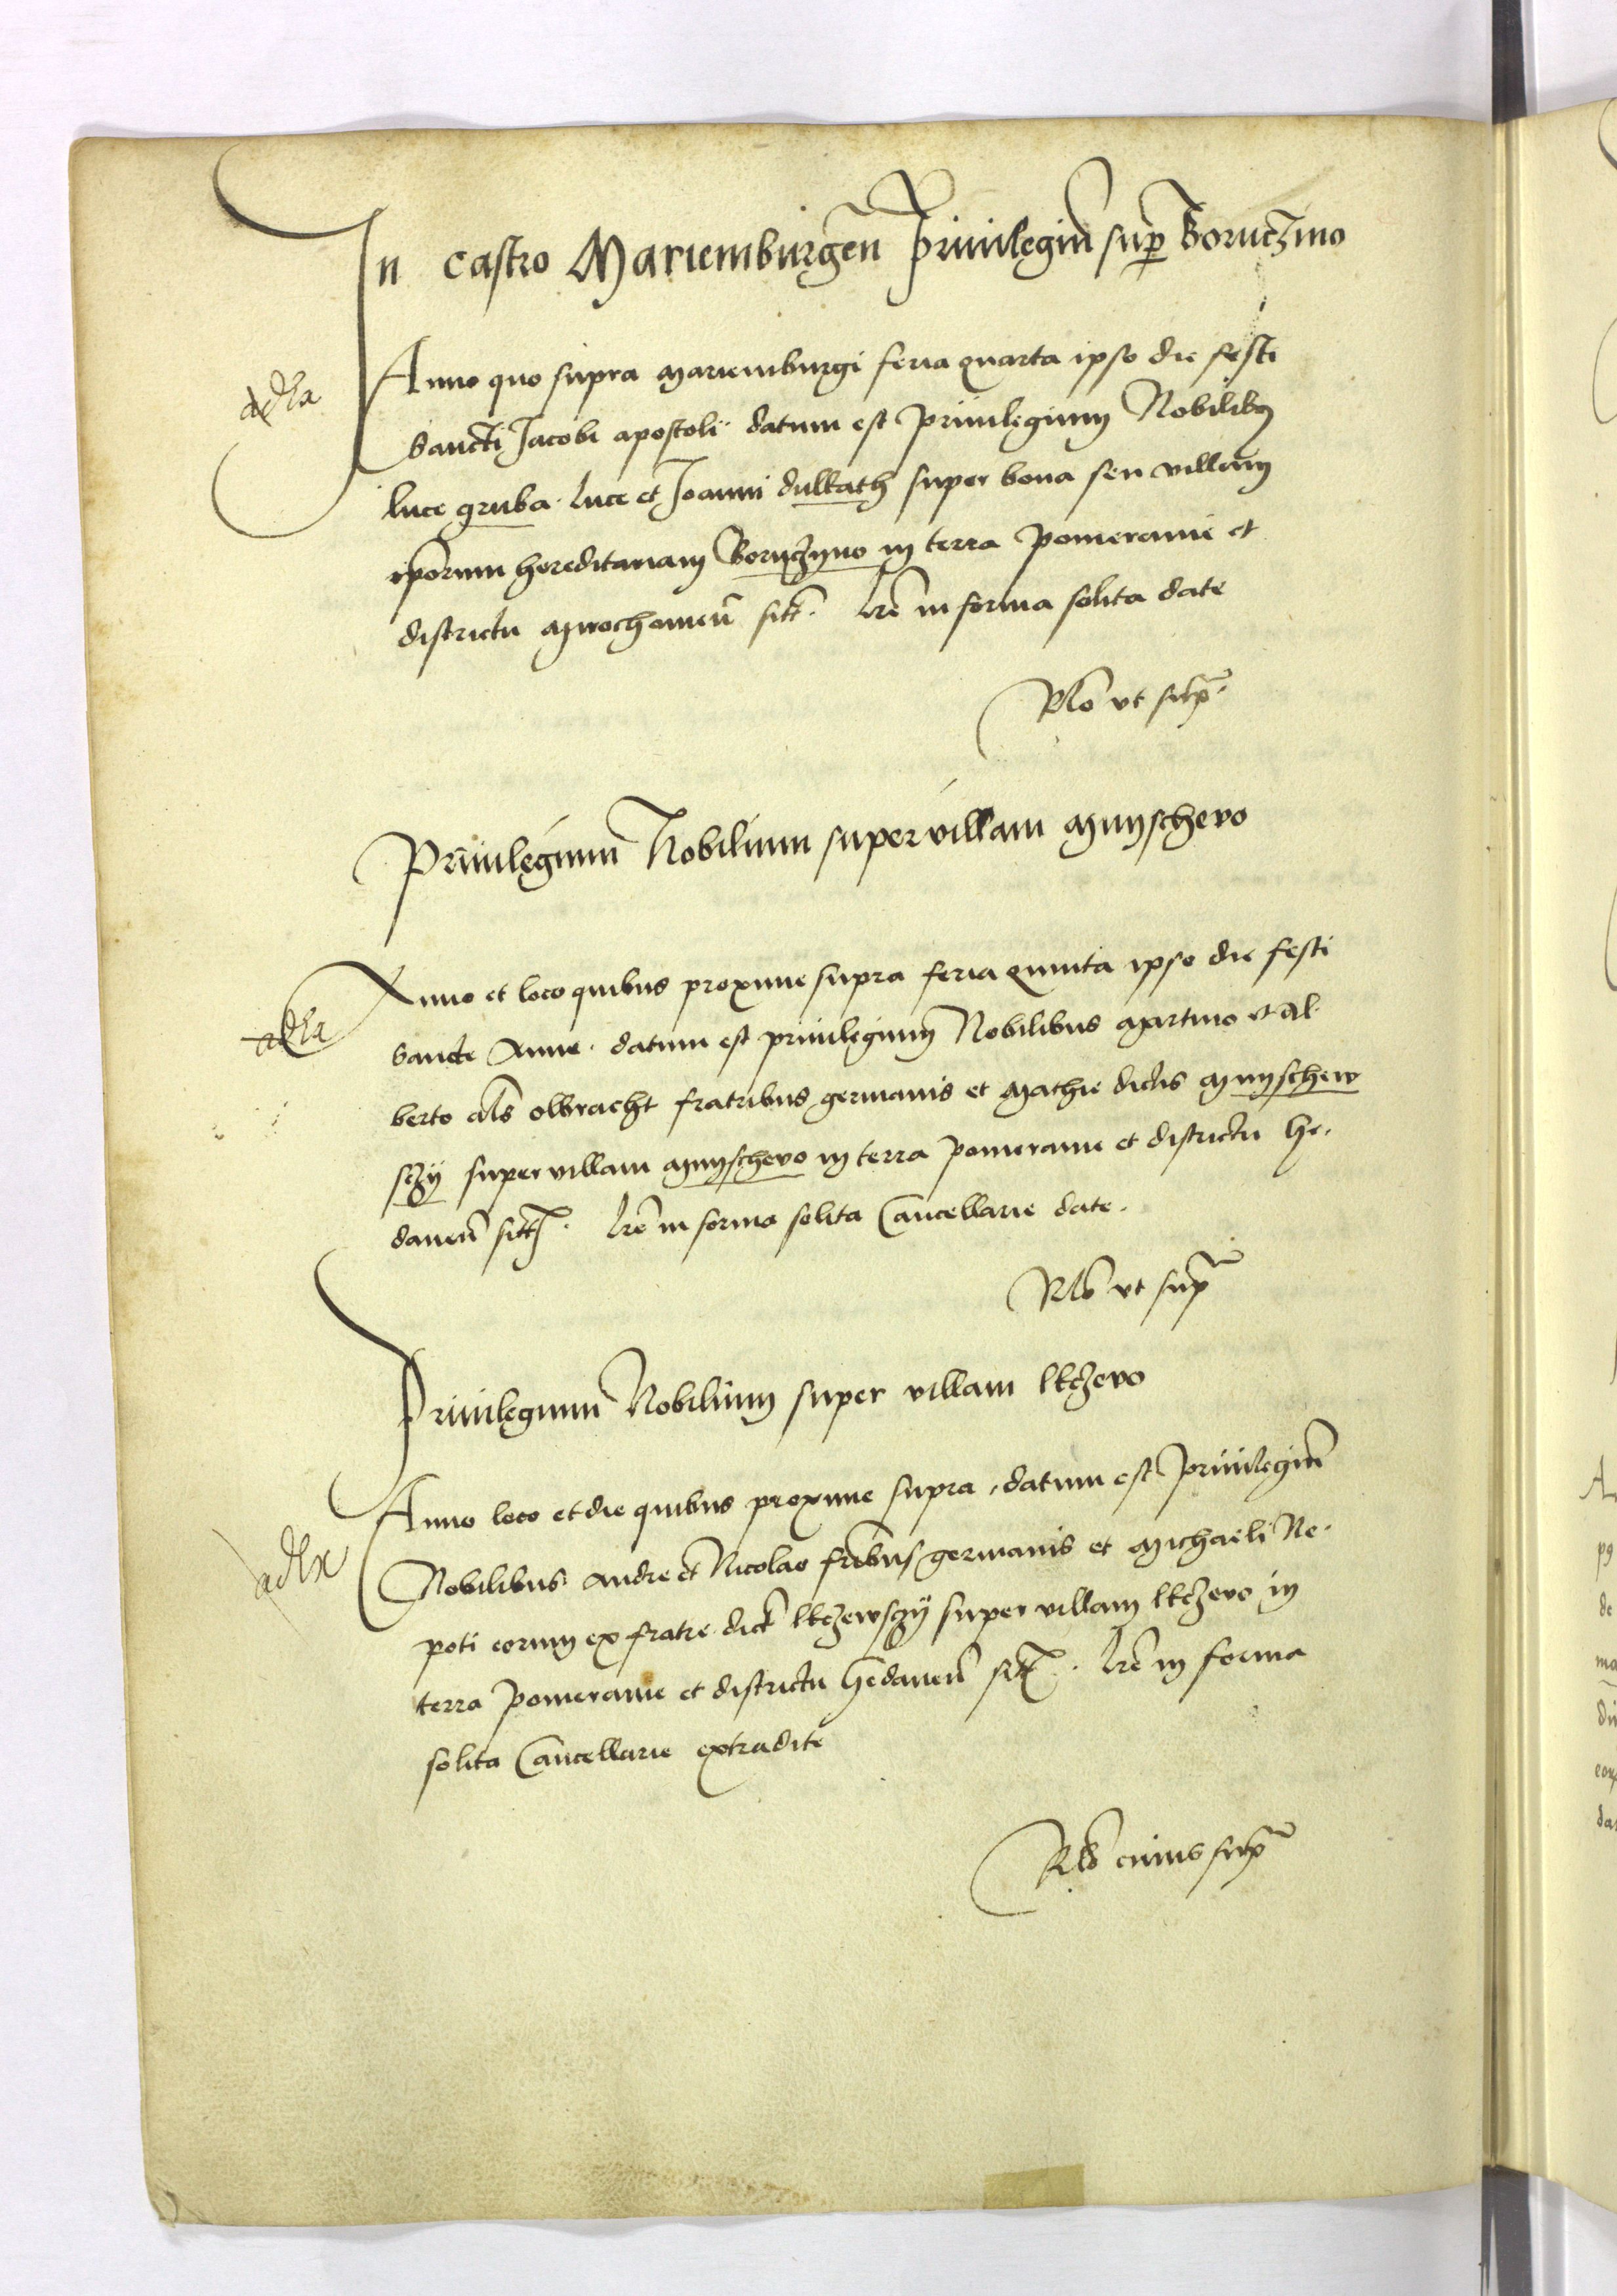 In castro Mariemburgen̄ Priuilegiū sup̱ Boruczino
Anno quo supra Mariemburgi feria quarta ipso die festi
Sancti Jacobi apostoli datum est priuilegium Nobilibꝫ
Luce gruba. Luce et Joanni dulkath super bona seu villam
ip̄orum hereditariam Boruczyno in terra Pomeranie et
districtu Mirochonien̄ sitt̄. Lr̄e in forma solita date
Rlō vt sup̄.
Priuilegium Nobilium super villam Myschewo
Anno et loco quibus proxime supra feria quinta ipso die festi
Sancte Anne. datum est priuilegium Nobilibus Martino et Al-
berto al̄s olbracht fratribus germanis et Mathie dictis Myschew
sczÿ super villam Myschewo in terra Pomeranie et districtu Ge-
danen̄ sitt̄. Lr̄e in forma solita Cancellarie date.
Rlō vt sup̄
Priuilegium Nobilium super villam lkczewo
Anno loco et die quibus proxime supra, datum est priuilegiū
Nobilibus Andree et Nicolao fr̄ibus germanis et Michaeli Ne-
poti eorum ex fratre dict̄ lkczewsczÿ super villam lkczewo in
terra Pomeranie et districtu Gedanen̄ sitt̄. Lr̄e in forma
solita Cancellarie extradite
Rlō cuius sup̄